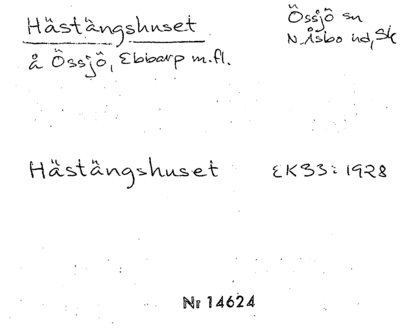 Hästängshuset
Össjö sn
N. Åsbo hd, Sk
å Össjö, Ebbarp m.fl.
Hästängshuset EK33:1928
Nr 14624